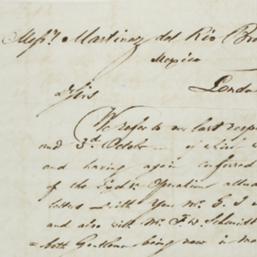 Messrs. Martinez del Rio Bro
Mexico
Londo
Sirs
We refer to our last resp
and 3d. October
and having again conferred
of the
letters with Your Mr.
and also with Mr. Fr. Schmidt
both Gentlemen being now in